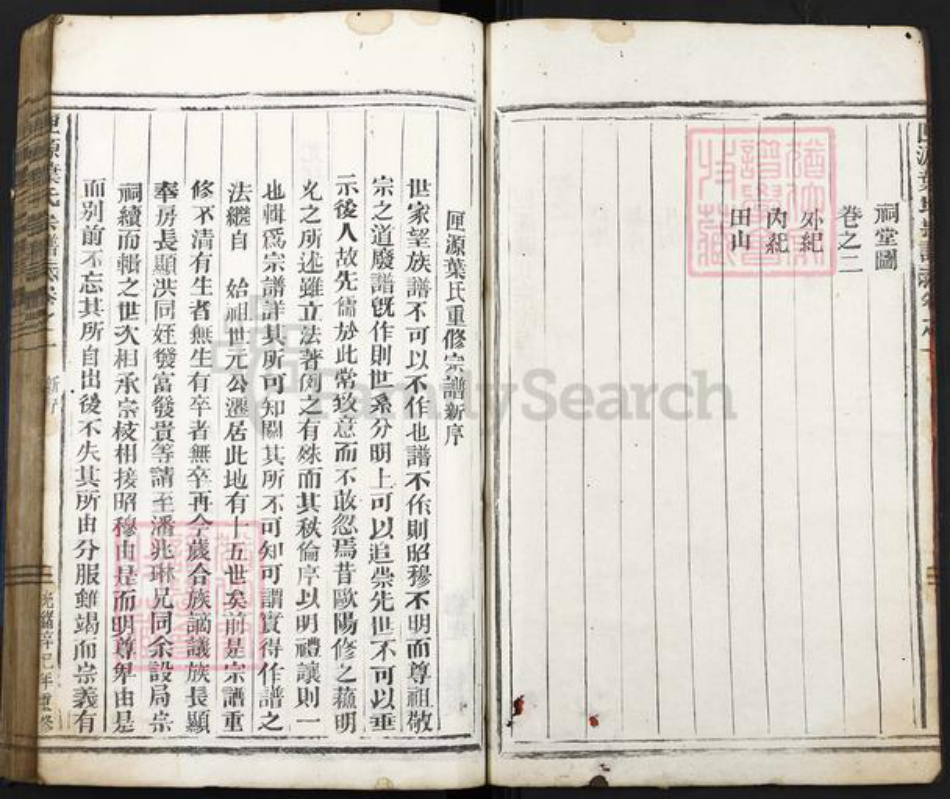 祠堂圖
卷之二
外紀
內紀
田山
匣源葉氏重修宗譜新序
世家望族譜不可以不作也譜不作則昭穆不明而尊祖敬
宗之道廢譜旣作則世系分明上可以追崇先世不可以垂
示後人故先儒於此常致意而不敢忽焉昔歐陽修之蘓明
允之所述雖立法著例之有殊而其秩倫序以明禮讓則一
也輯爲宗譜詳其所可知闕其所不可知可謂實得作譜之
法繼自 始祖世元公遷居此地有十五世矣前是宗譜重
修不清有生者無生有卒者無卒再今歲合族謫議族長顯
奉房長顯洪同姪發富發貴等請至潘兆琳兄同余設局宗
祠續而輯之世次相承宗枝相接昭穆由是而明尊卑由是
而別前不忘其所自出後不失其所由分服雖竭而宗義有
匣源葉氏宗譜 新序
光緒 年重修
FamilySearch